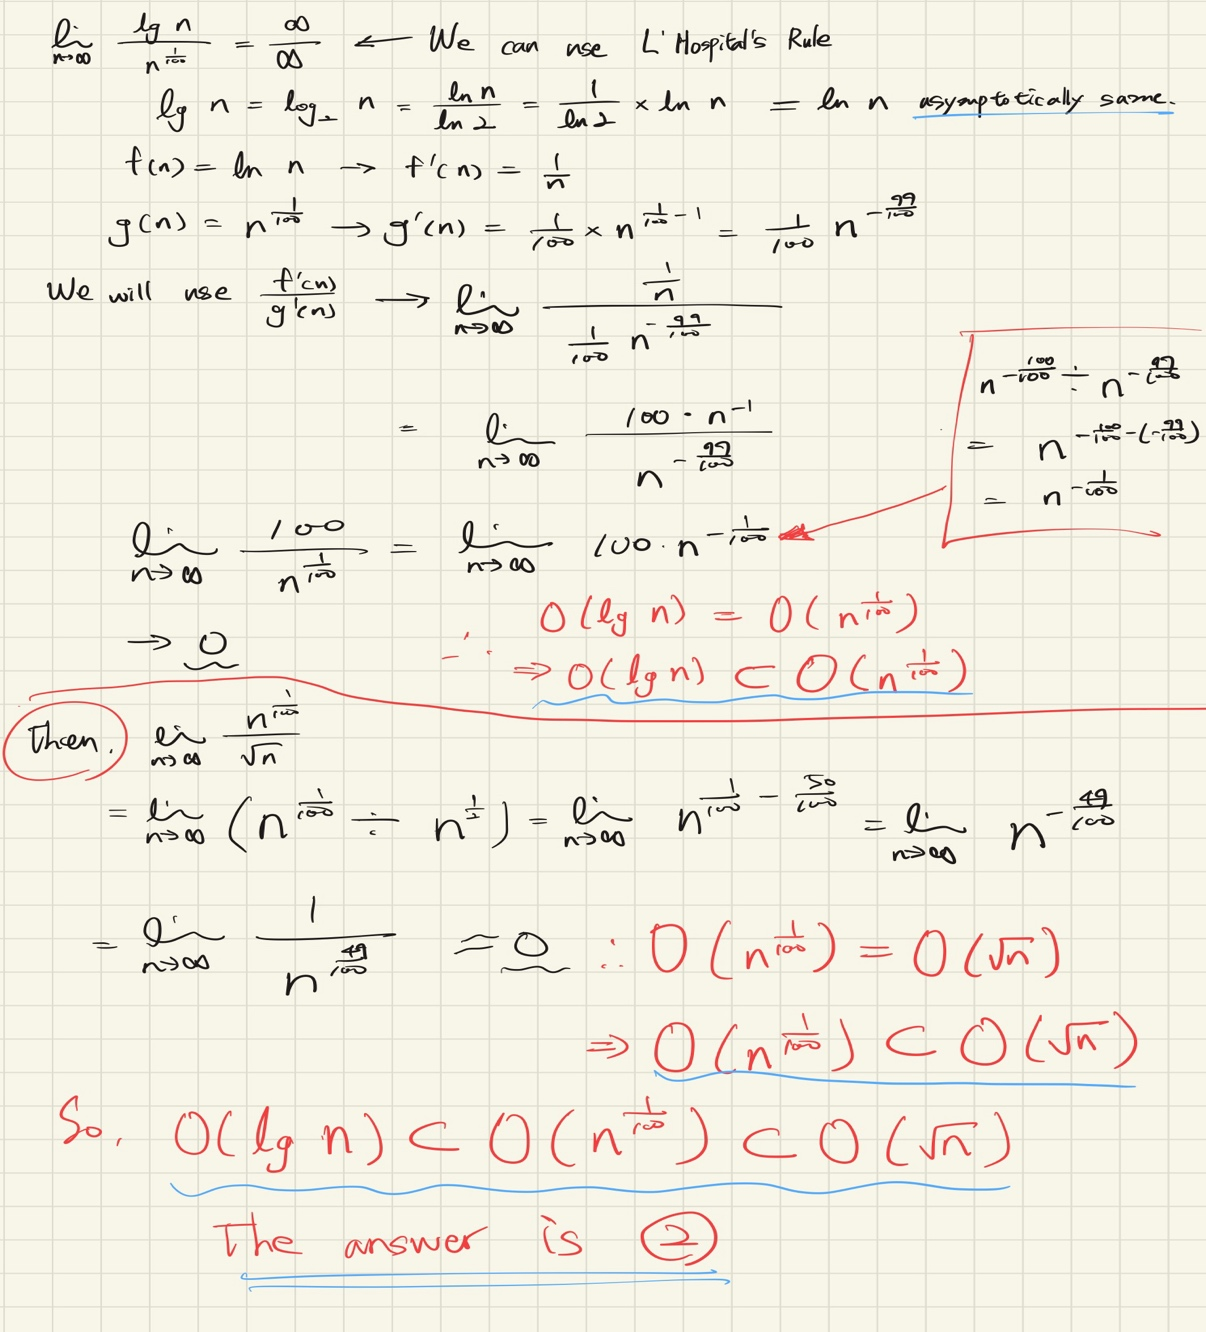 lim n→∞ lg n / n^(1/100) = ∞/∞ ← We can use L'Hospital's Rule
lg n = log₂ n = ln n / ln 2 = 1/ln 2 × ln n = ln n asymptotically same.
f(n) = ln n → f'(n) = 1/n
g(n) = n^(1/100) → g'(n) = 1/100 × n^(1/100 - 1) = 1/100 n^(-99/100)
We will use f'(n)/g'(n) → lim n→∞ (1/n) / (1/100 n^(-99/100))
n^(-100/100) ÷ n^(-99/100)
= n^(-100/100-(-99/100))
= n^(-1/100)
= lim n→∞ (100 · n^(-1)) / n^(-99/100)
lim n→∞ 100 / n^(1/100) = lim n→∞ 100 · n^(-1/100)
→ 0
∴ O(lg n) = O(n^(1/100))
⇒ O(lg n) ⊂ O(n^(1/100))
Then, lim n→∞ n^(1/100) / √n
= lim n→∞ (n^(1/100) ÷ n^(1/2)) = lim n→∞ n^(1/100 - 50/100) = lim n→∞ n^(-49/100)
= lim n→∞ 1 / n^(49/100) = 0 ∴ O(n^(1/100)) = O(√n)
⇒ O(n^(1/100)) ⊂ O(√n)
So, O(lg n) ⊂ O(n^(1/100)) ⊂ O(√n)
The answer is ②